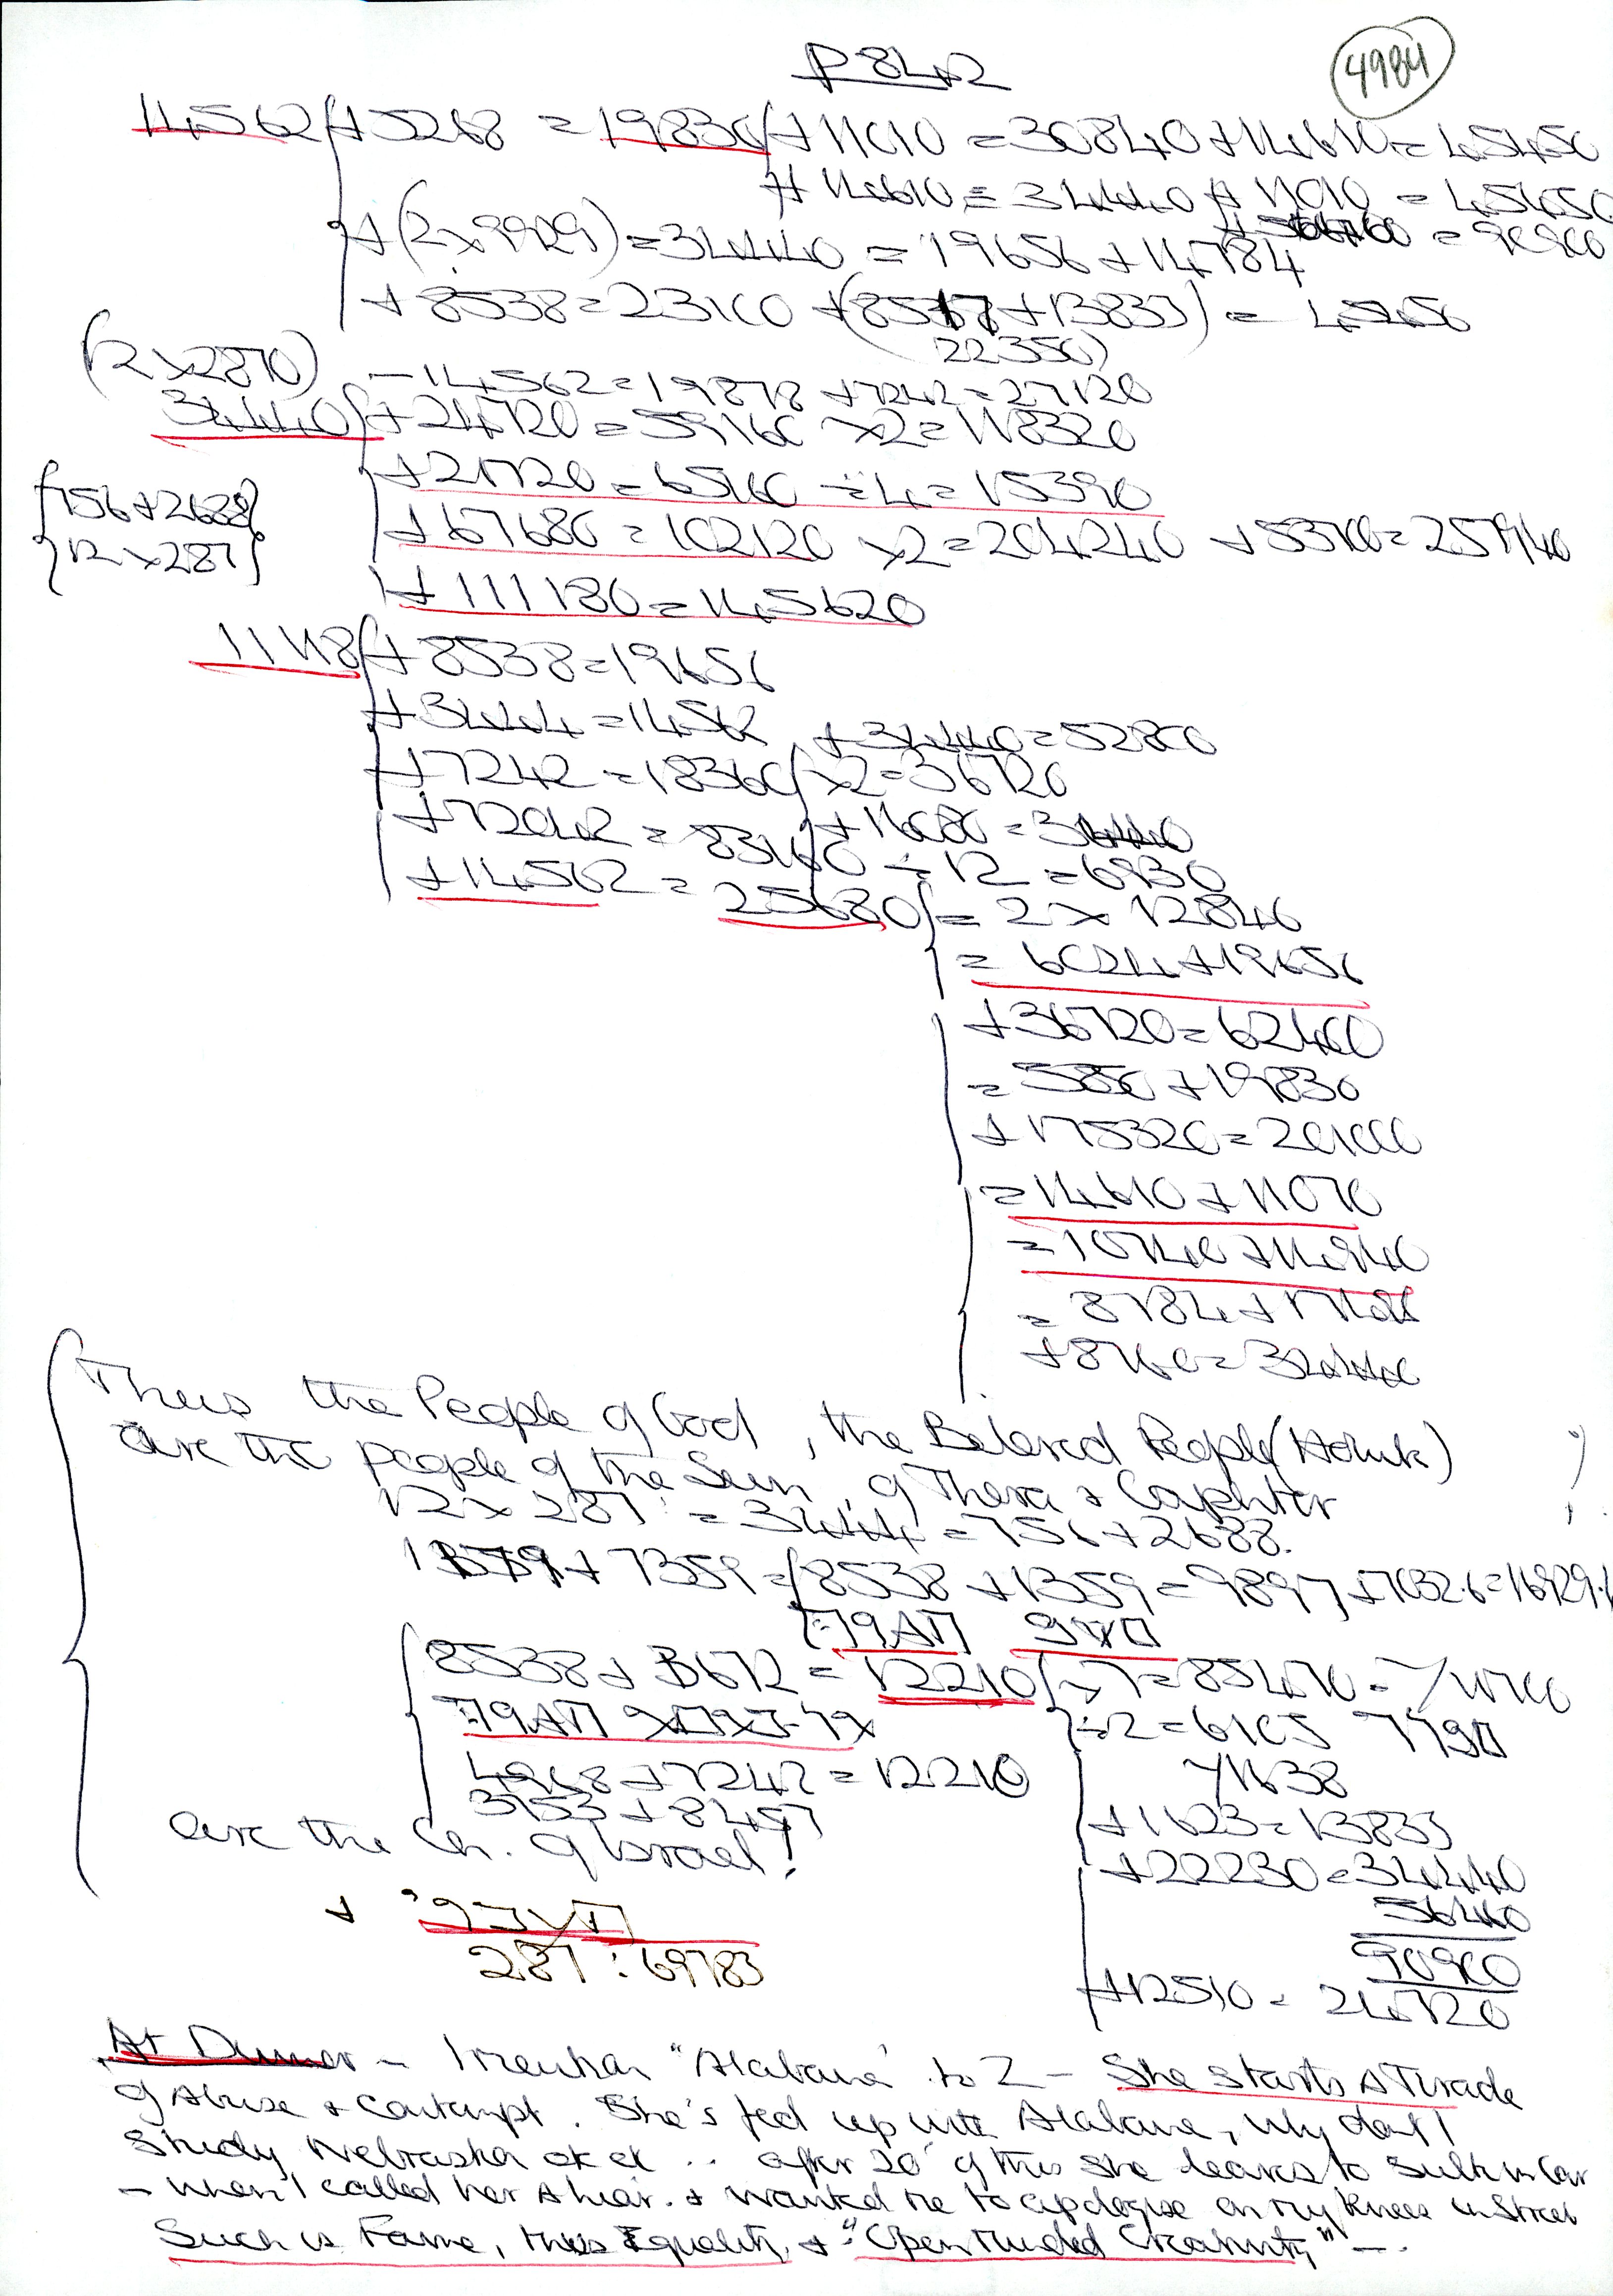 P 842
4984
14562 + 5268 = 19830 + 11010 = 30840 + 14610 = 45450
+ 14610 = 34440 + 11010 = 45450
= 90900
+ (2 × 9929) = 34440 = 19656 + 14784
+ 8538 = 23100 + (8517 + 13833) = 45450
22350)
(12 × 2870) - 14562 = 19878 + 7242 = 27120
34440 + 24720 = 59160 × 2 = 118320
+ 21720 = 65160 ÷ 4 = 15390
{756 + 2688}
+ 67680 = 102120 × 2 = 204240 + 53700 = 257940
{12 × 287}
+ 111180 = 145620
11118 + 8538 = 19656
+ 3444 = 14562 + 34440 = 52800
+ 7242 = 18360 × 2 = 36720
+ 72042 = 83160 + 16080 = 34440
÷ 12 = 6930
+ 14562 = 25680 = 2 × 12840
= 6024 + 19656
+ 36720 = 62400
= 5850 + 19830
+ 175320 = 201000
= 14610 + 11070
= 10740 + 14940
= 8184 +
+ 8760 = 34440
Thus the People of God, the Beloved People
are the people of the Sun, of Thera & Caphtor
12 × 287 = 3444 = 756 + 2688.
+ 7359 = 8538 + 1359 = 9897 + 7032.6 = 16929.6
8538 + 3672 = 12210 × 7 = 85470 =
÷ 2 = 6105
4968 + 7242 = 12210
71638
3753 + 8457
+ 1623 = 13833
are the Ch. of Israel!
+ 22230 = 34440
56460
90900
287 : 69783
+ 12510 = 24720
At Dinner - I mention "Alabama" to Z - She starts A Tirade
of Abuse & Contempt. She's fed up with Alabama, why don't I
Study Nebraska .. after 20' of this she leaves to sulk in Car
- when I called her a liar. & wanted me to apologise on my knees in Street
Such is Fame, this Equality, & "Open Minded Creativity" -.